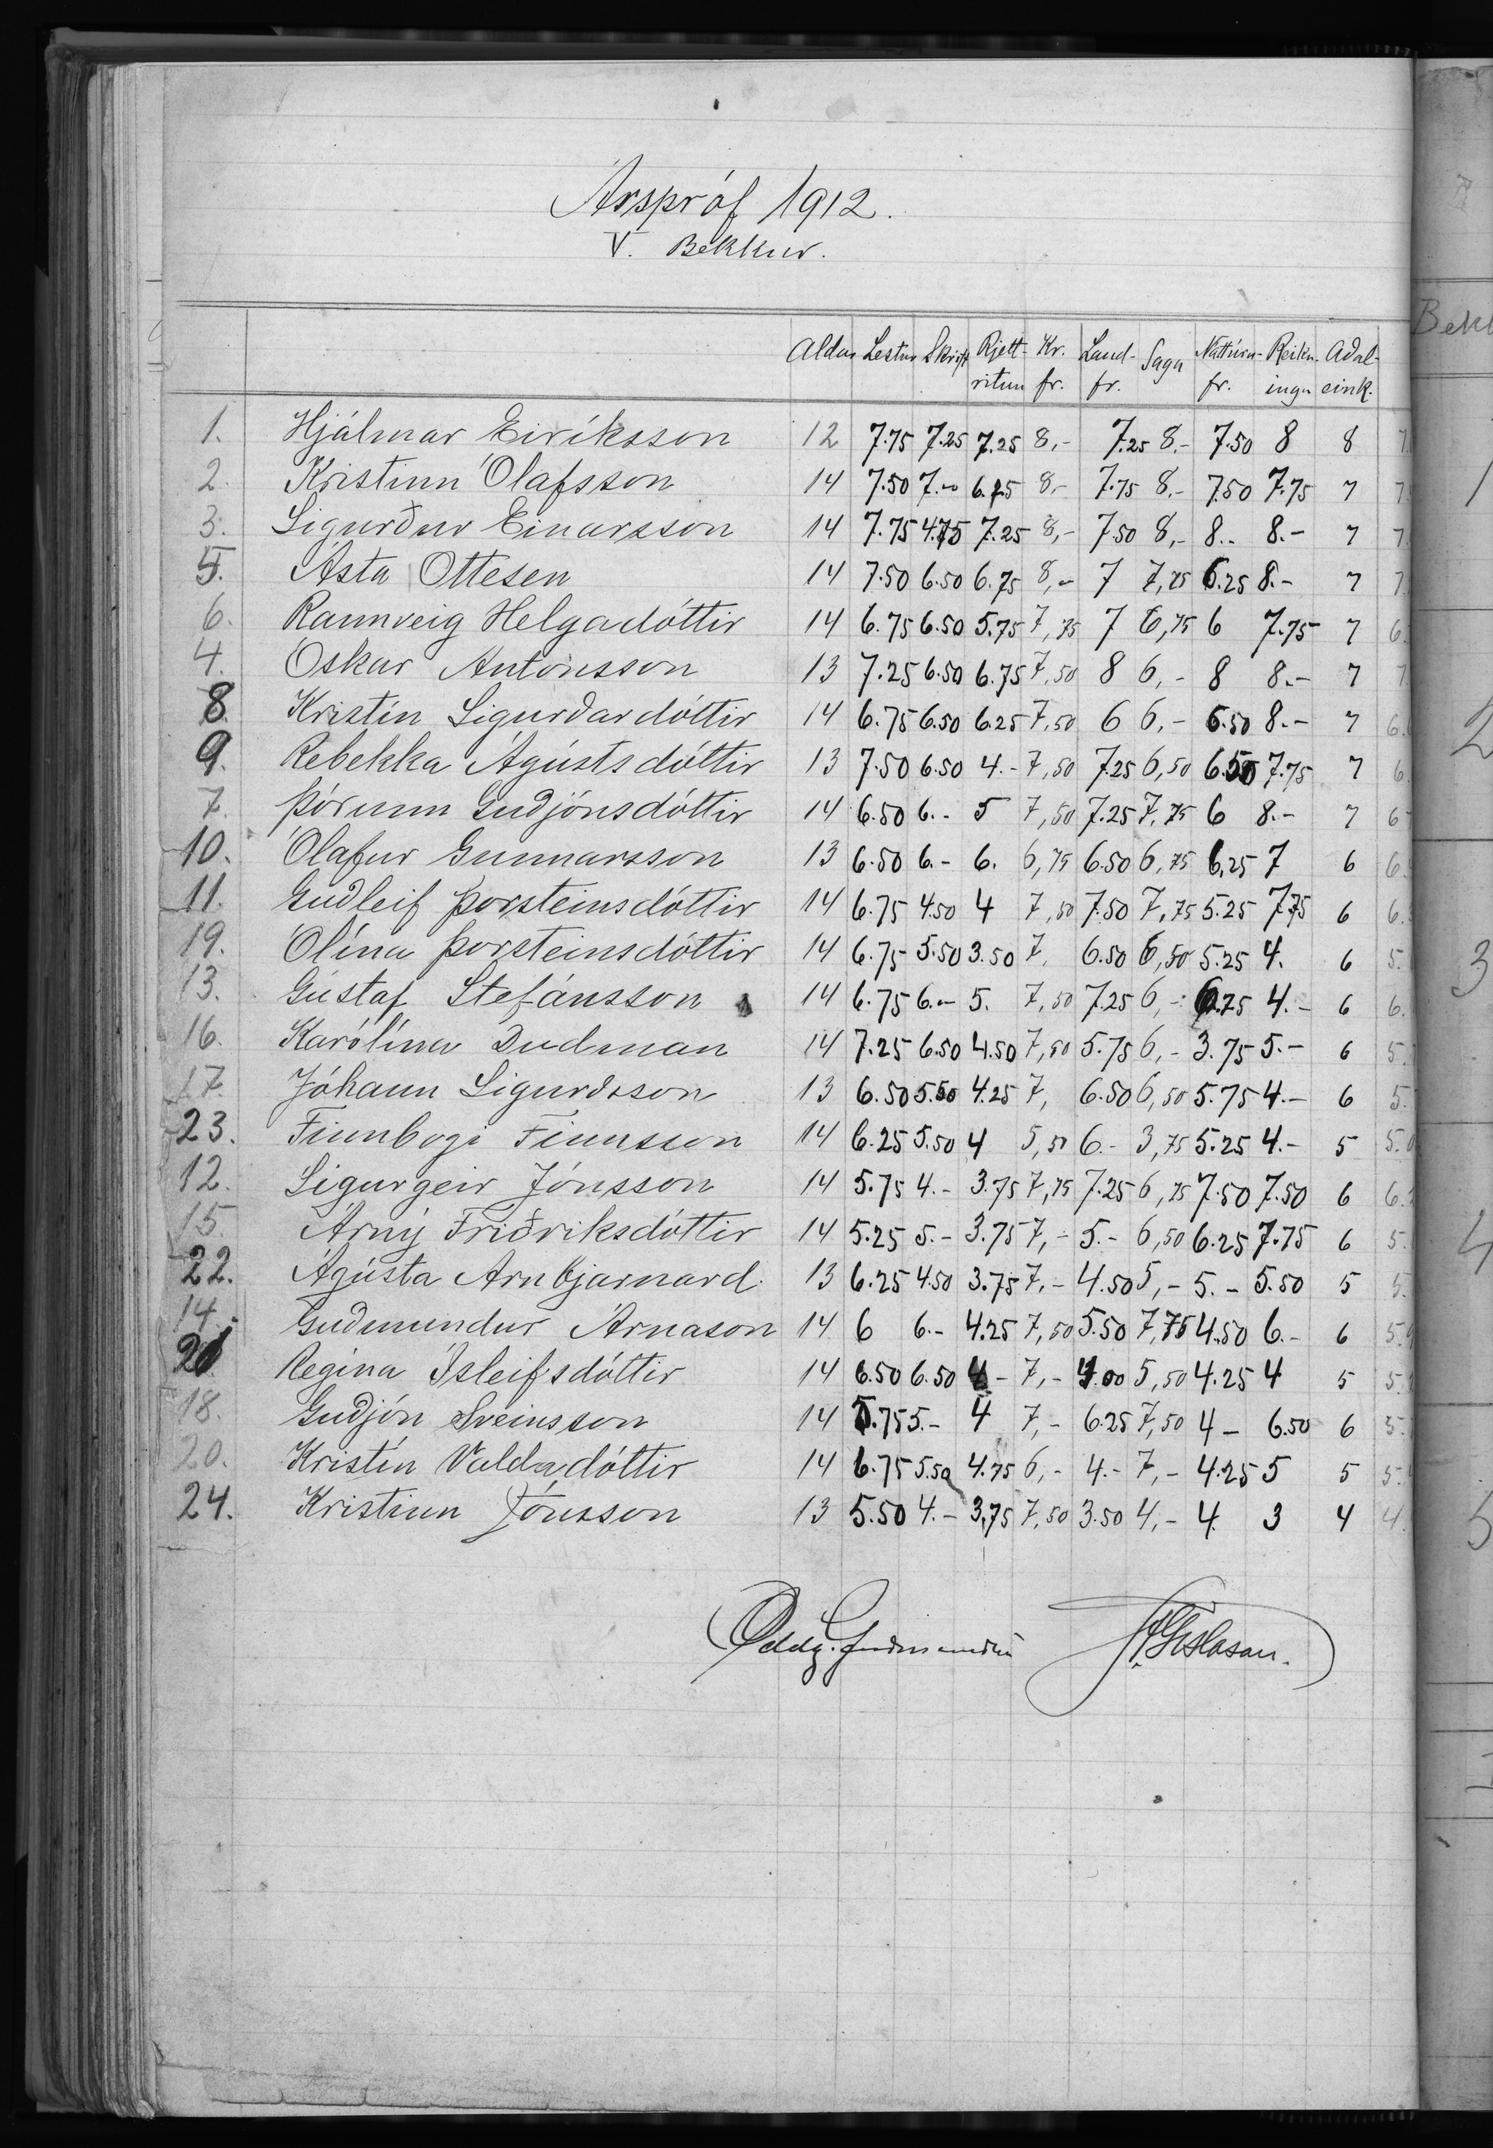 Árspróf 1912.
V. Bekkur.
Aldur Lestur Skrift Rjett-ritun Kr.fr. Land-fr. Saga Náttúru-fr. Reikn-ingu Aðal-eink.
1. Hjálmar Eiríksson 12 7.75 7.25 7.25 8,- 7.25 8.- 7.50 8 8
2 Kristinn Ólafsson 14 7.50 7.- 8,- 7.75 8.- 7.50 7.75 7
3. Sigurður Einarsson 14 7.75 4.75 7.25 8,- 7.50 8,- 8.- 8.- 7
5. Ásta Ottesen 14 7.50 6.50 6.75 8,- 7 7,25 6.25 8.- 7
6. Rannveig Helgadóttir 14 6.75 6.50 5.75 7,75 7 6,75 6 7.75 7
4. Óskar Antonsson 13 7.25 6.50 6.75 7,50 8 6,- 8 8.- 7
8 Kristín Sigurðardóttir 14 6.75 6.50 6.25 7,50 6 6,- 6.50 8.- 7
9. Rebekka Ágústsdóttir 13 7.50 6.50 4.- 7,50 7.25 6,50 6.50 7.75 7
7. Þórunn Guðjónsdóttir 14 6.50 6.- 5 7,50 7.25 7,75 6 8.- 7
10. Ólafur Gunnarsson 13 6.50 6.- 6. 6,75 6.50 6,75 6.25 7 6
11. Guðleif Þorsteinsdóttir 14 6.75 4.50 4 7,50 7.50 7,75 5.25 7.75 6
19. Ólína Þorsteinsdóttir 14 6.75 5.50 3.50 7, 6.50 6,50 5.25 4. 6
13. Gústaf Stefánsson 14 6.75 6.- 5. 7,50 7.25 6,- 6.75 4.- 6
16. Karólína Dudman 14 7.25 6.50 4.50 7,50 5.75 6,- 3.75 5.- 6
17. Jóhann Sigurðsson 13 6.50 5.50 4.25 7, 6.50 6,50 5.75 4.- 6
23. Finnbogi Finnsson 14 6.25 5.50 4 5,50 6.- 3,75 5.25 4.- 5
12. Sigurgeir Jónsson 14 5.75 4.- 3.75 7,75 7.25 6,75 7.50 7.50 6
15. Árný Friðriksdóttir 14 5.25 5.- 3.75 7,- 5.- 6,50 6.25 7.75 6
22. Ágústa Arnbjarnard. 13 6.25 4.50 3.75 7,- 4.50 5,- 5.- 5.50 5
14. Guðmundur Árnason 14 6 6.- 4.25 7,50 5.50 7,75 4.50 6.- 6
21 Regína Ísleifsdóttir 14 6.50 6.50 4- 7,- 4.00 5,50 4.25 4 5
18. Guðjón Sveinsson 14 5.75 5.- 4 7,- 6.25 7,50 4- 6.50 6
20. Kristín Valdadóttir 14 6.75 5.50 4.75 6,- 4.- 7,- 4.25 5 5
24. Kristinn Jónsson 13 5.50 4.- 3,75 7,50 3.50 4,- 4. 3 4